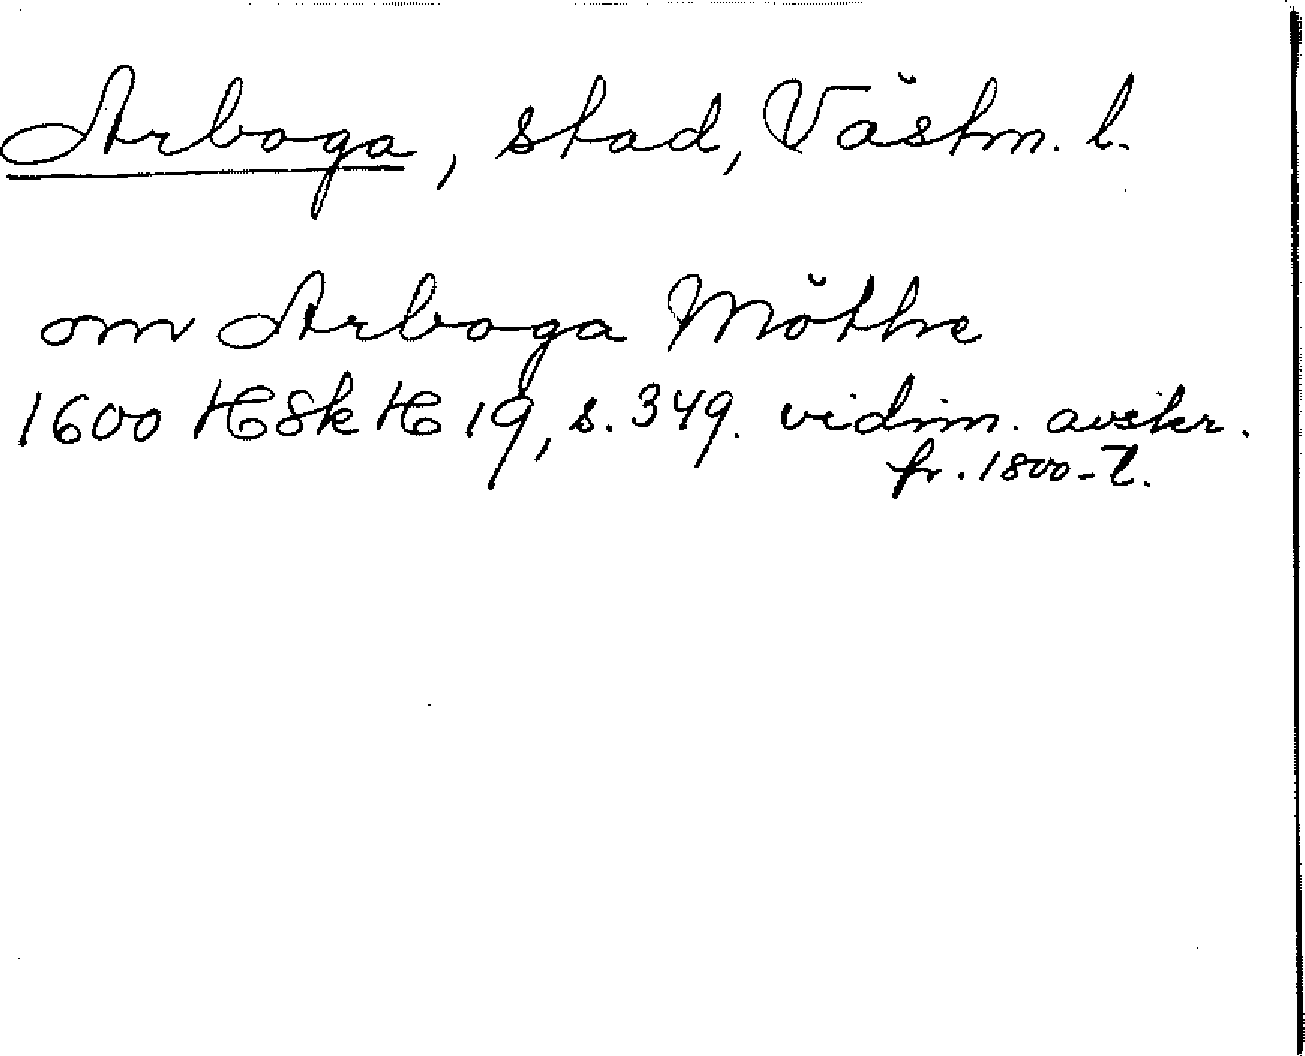 Arboga, stad, Västm. l.
om Arboga Möthe
1600 HSk H 19, s. 349. vidim. avskr.
fr. 1800-t.